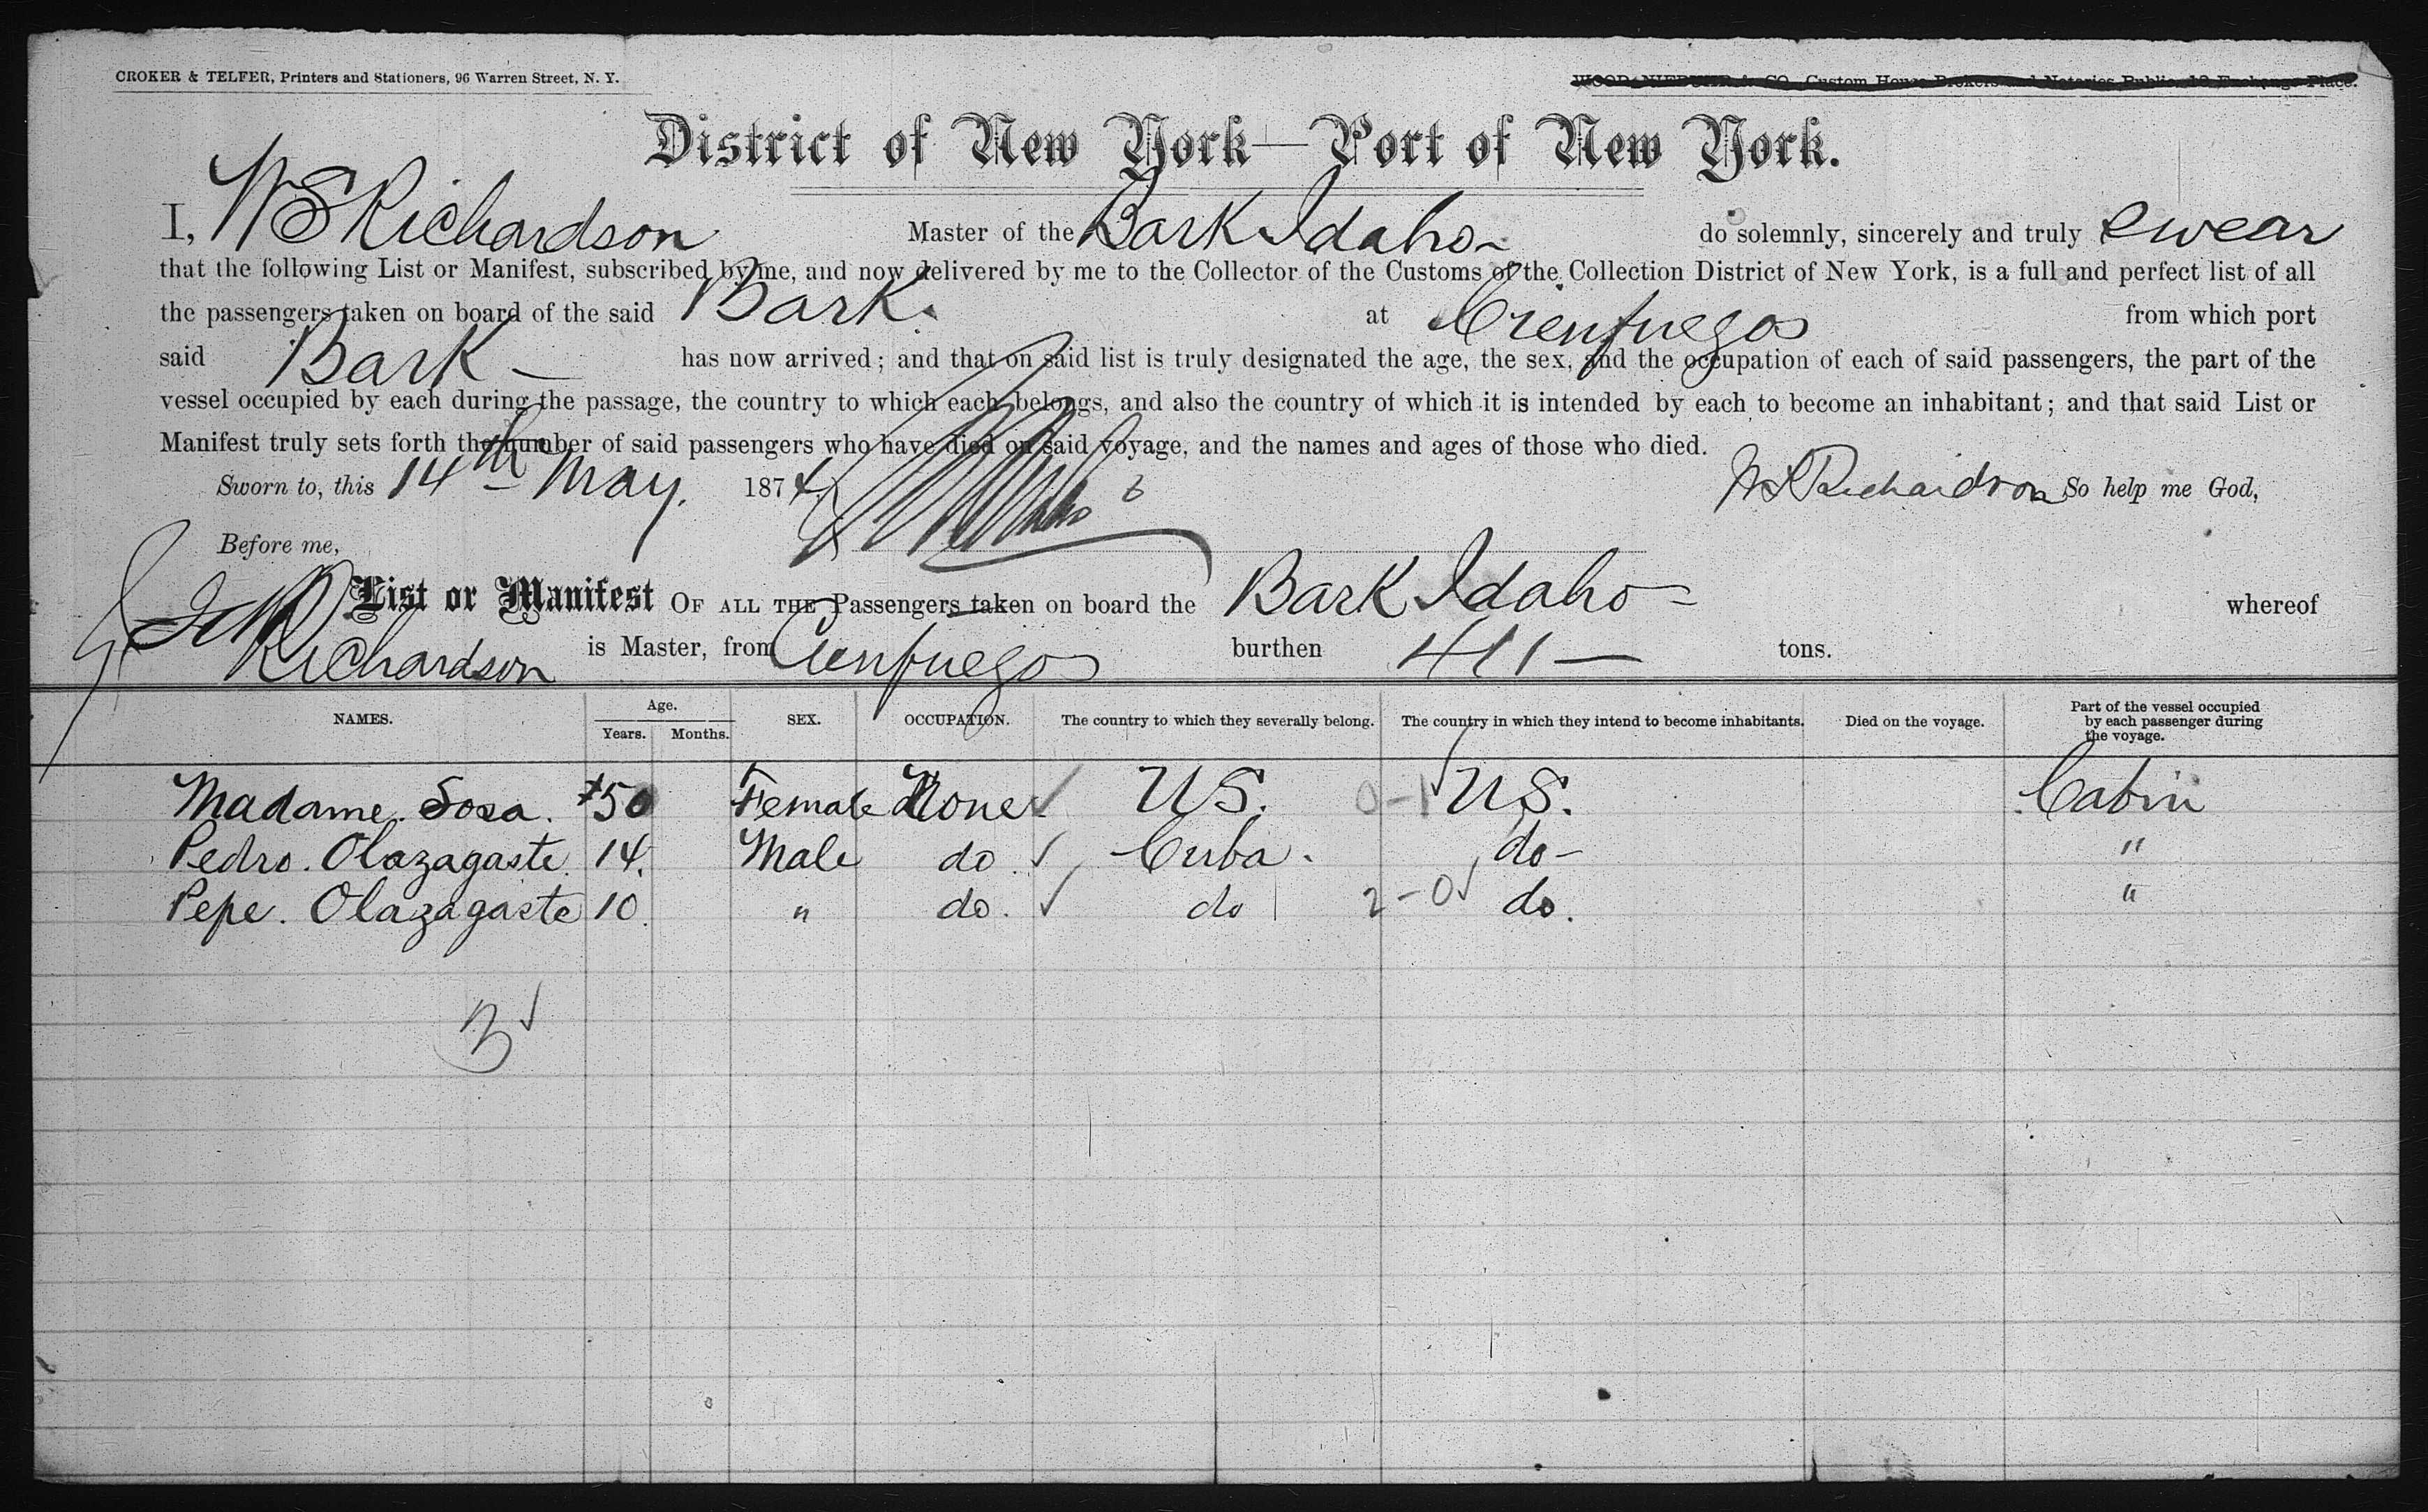 CROKER & TELFER, Printers and Stationers, 96 Warren Street, N. Y.
CO. Custom House Brokers and Notaries Public, 18 Exchange Place.
District of New York—Port of New York.
I, W S Richardson Master of the Bark Idaho do solemnly, sincerely and truly swear
that the following List or Manifest, subscribed by me, and now delivered by me to the Collector of the Customs of the Collection District of New York, is a full and perfect list of all
the passengers taken on board of the said Bark at Cienfuegos from which port
said Bark — has now arrived; and that on said list is truly designated the age, the sex, and the occupation of each of said passengers, the part of the
vessel occupied by each during the passage, the country to which each belongs, and also the country of which it is intended by each to become an inhabitant; and that said List or
Manifest truly sets forth the number of said passengers who have died on said voyage, and the names and ages of those who died.
Sworn to, this 14th May. 1874. W S Richardson So help me God,
Before me,
List or Manifest OF ALL THE Passengers taken on board the Bark Idaho whereof
Richardson is Master, from Cienfuegos burthen 411 — tons.
NAMES. Age. Years. Months. SEX. OCCUPATION. The country to which they severally belong. The country in which they intend to become inhabitants. Died on the voyage. Part of the vessel occupied by each passenger during the voyage.
Madame Sosa. 50 Female None ✓ US. 0-1 ✓ US. Cabin
Pedro. Olazagaste. 14. Male do. ✓ Cuba. do - "
Pepe. Olazagaste 10. " do. ✓ do 2-0 ✓ do. "
3 ✓